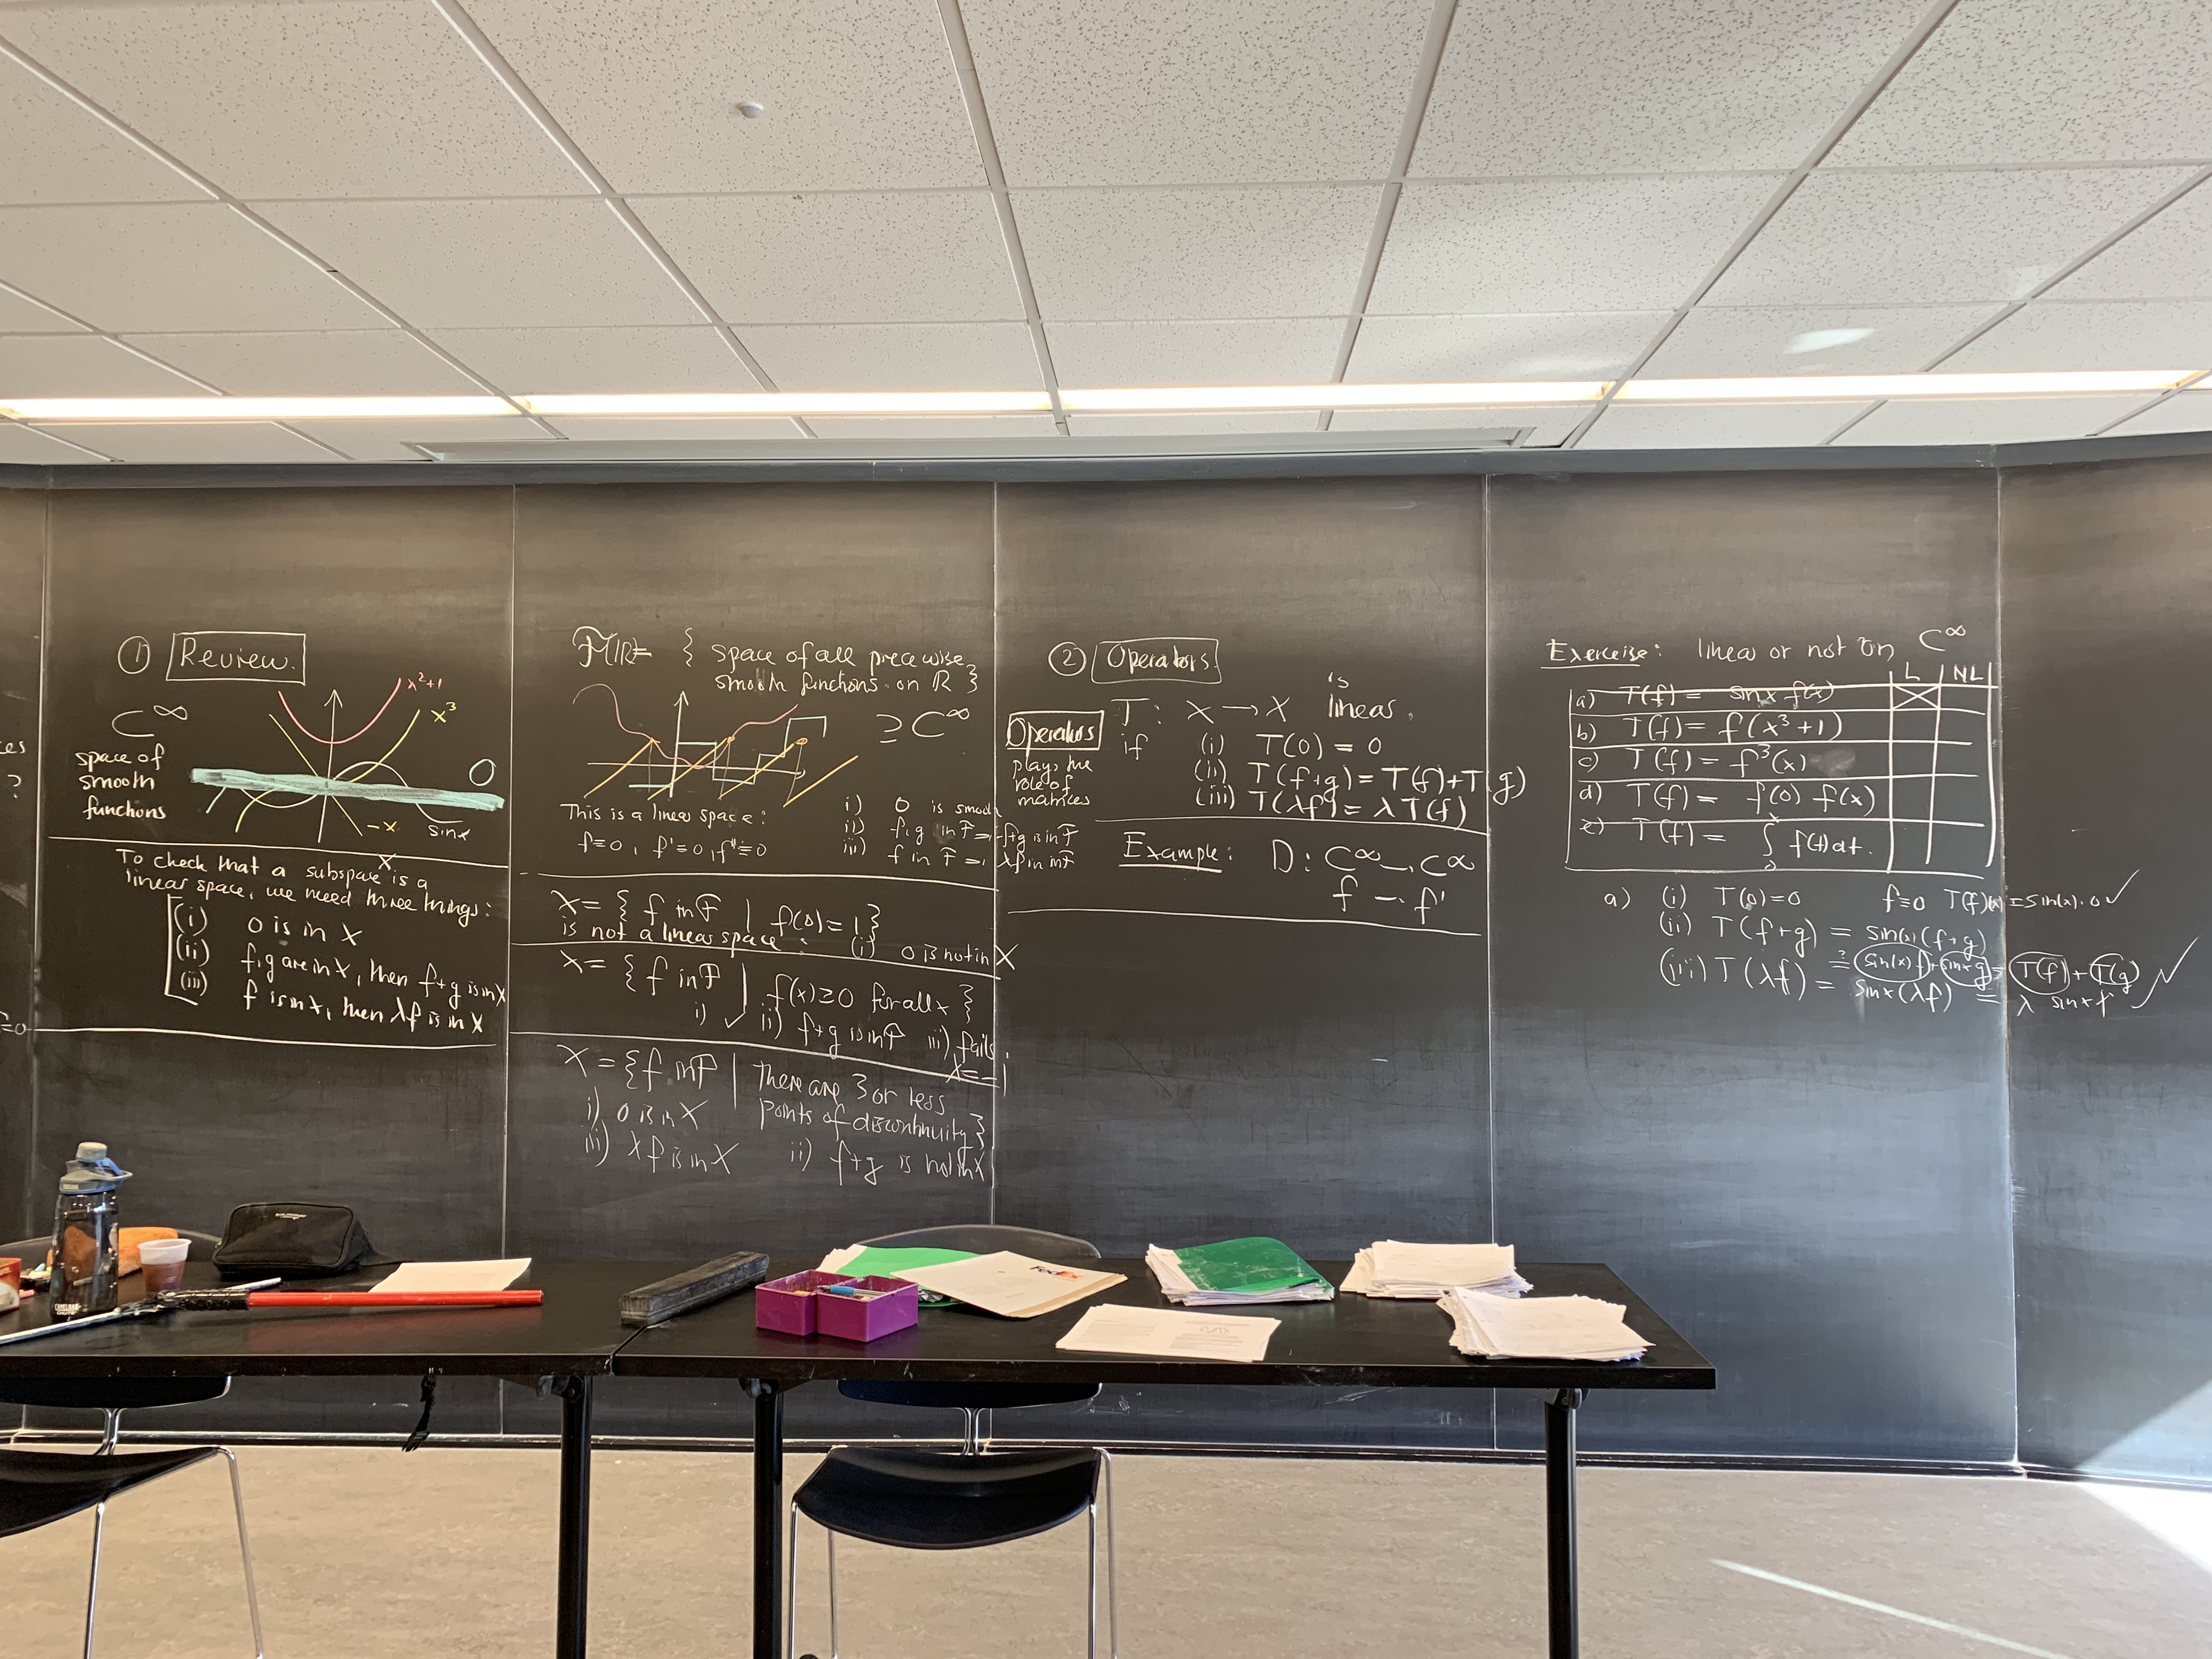 ① Review.
C^∞
space of
smooth
functions
x²+1
x³
0
-x
sin x
To check that a subspace X is a
linear space, we need three things:
(i) 0 is in X
(ii) f,g are in X, then f+g is in X
(iii) f is in X, then λf is in X
ces
?
=0
{ space of all piecewise
smooth functions on ℝ }
⊇ C^∞
This is a linear space:
f≡0, f'≡0, f''≡0
i) 0 is smooth
ii) f,g in F ⇒ f+g is in F
iii) f in F ⇒ λf in in F
X = { f in F | f(0)=1 }
is not a linear space: (i) 0 is not in X
X = { f in F | f(x)≥0 for all x }
i) ✓ ii) f+g is in F iii) fails
X = { f in F | There are 3 or less
points of discontinuity }
i) 0 is in X
iii) λf is in X ii) f+g is not in X
② Operators.
Operators
plays the
role of
matrices
T: X → X is linear,
if (i) T(0) = 0
(ii) T(f+g) = T(f)+T(g)
(iii) T(λf) = λ T(f)
Example: D: C^∞ → C^∞
f → f'
Exercise: linear or not on C^∞
L NL
a) T(f) = sin x f(x)
b) T(f) = f(x³+1)
c) T(f) = f³(x)
d) T(f) = f(0) f(x)
e) T(f) = ∫₀ˣ f(t) dt.
a) (i) T(0)=0 f≡0 T(f)(x) = sin(x)·0 ✓
(ii) T(f+g) = sin(x) (f+g)
≟ sin(x) f + sin x g = T(f) + T(g) ✓
(iii) T(λf) = sin x (λf) = λ sin x f ✓
FedEx
CAMELBAK